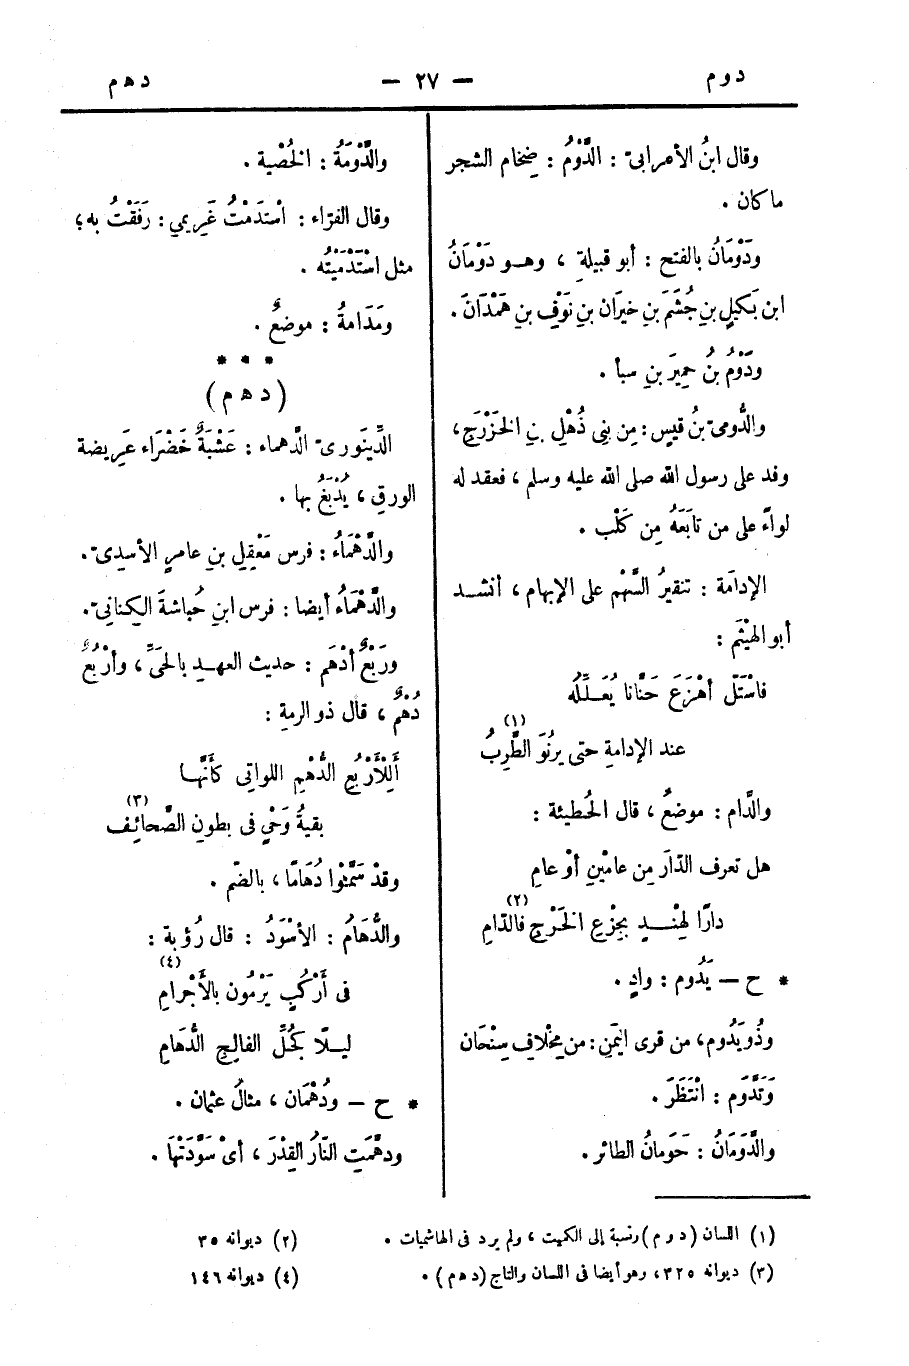 دوم — ٢٧ — دهم
وقال ابنُ الأعرابىّ : الدَّوْمُ : ضِخام الشجر
ما كان .
ودَوْمَانُ بالفتح : أبو قبيلةٍ ، وهــو دَوْمَانُ
ابن بَكيلِ بنِ جُشَمَ بنِ خَيرَان بنِ نَوْفِ بنِ هَمْدَانَ .
ودَوْمُ بنُ حِميَرَ بنِ سبأ .
والدُّومىّ بنُ قيسٍ : مِن بَنِى ذُهْلِ بنِ الخَزْرَجِ ،
وفد على رسول الله صلى الله عليه وسلم ، فعقد له
لواءً على من تابَعَهُ مِن كَلْب .
الإدامَة : تنقيرُ السَّهْم على الإبهام ، أنشــد
أبو الهَيْثَم :
فاسْتَلّ أهْزَعَ حَنَّانا يُعَــلِّلُه
عند الإدامةِ حتى يرنُوَ الطَّرِبُ (١)
والدَّام : موضعٌ ، قال الحُطيئة :
هل تعرف الدّارَ مِن عامَيْنِ أوْ عامِ
دارًا لِهِنْــــدٍ بِجِزْعِ الخَرْجِ فالدّامِ (٢)
* ح — يَدُوم : وادٍ .
وذُو يَدُوم ، من قرى اليمَنِ : من مِخْلافِ سِنْحَان
وَتَدَّوَم : انْتَظَرَ .
والدَّوَمَانُ : حَوَمانُ الطائر .
والدَّوْمَةُ : الخُصْية .
وقال الفرّاء : اسْتَدَمْتُ غَرِيمي : رَفَقْتُ به ؛
مثل اسْتَدْمَيْتُه .
ومَدَامةُ : موضعٌ .
* * *
( دهم )
الدِّينَورىّ الدَّهماء : عَشْبَةٌ خَضْرَاء عَرِيضة
الورقِ ، يُدْبَغُ بها .
والدَّهْمَاءُ : فرس مَعْقِلِ بنِ عامرٍ الأسدىّ .
والدَّهْمَاءُ أيضا : فرس ابنِ حُباشةَ الكِنانِىّ .
ورَبْعٌ أدْهَم : حديث العهــد بالحَىِّ ، وأرْبُعٌ
دُهْمٌ ، قال ذو الرمةِ :
أَلِلْأَرْبُعِ الدُّهْمِ اللواتِى كأنَّهــا
بقيةُ وَحْىٍ فى بطونِ الصَّحائِف (٣)
وقدْ سَمَّوْا دُهَامًا ، بالضّم .
والدُّهَامُ : الأسْوَدُ : قال رُؤبة :
فى أرْكُبٍ يَرْمُون بالأَجْرامِ (٤)
ليــلّا كَجُلِّ الفالِجِ الدُّهَامِ
* ح — ودُهْمَان ، مثالُ عثمان .
ودهَّمَتِ النّارُ القِدْرَ ، أىْ سَوَّدَتْهَا .
(١) اللسان (دوم) ونسبة إلى الكميت ، ولم يرد فى الهاشميات . (٢) ديوانه ٣٥
(٣) ديوانه ٣٢٥ ، وهو أيضا فى اللسان والتاج (دهم) . (٤) ديوانه ١٤٦